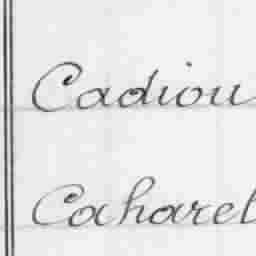 Cadiou
Caharel